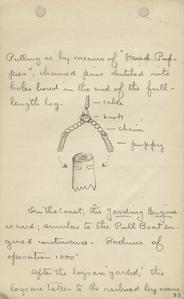 Pulling is by means of "Head Pup-
pies", chained pins hitched into
holes bored in the end of the full-
length log.
cable
hook
chain
puppy
On the coast, the Yarding Engine
is used; similar to the Pull Boat en-
gine & contrivance. Radius of
operation 1000'
After the logs are yarded, the
logs are taken to the railroad by means
33